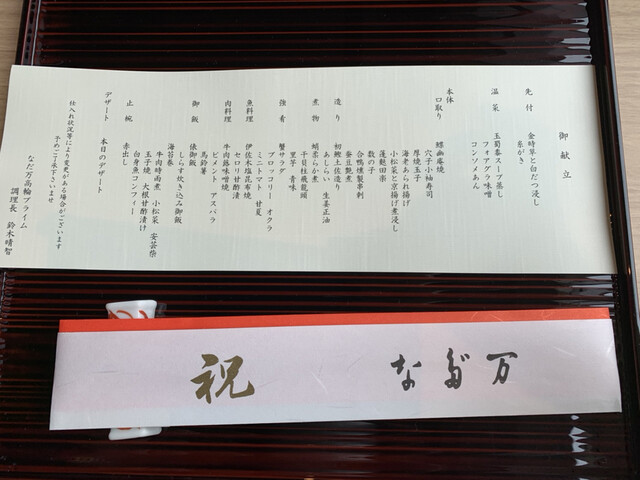 御献立
先付
金時草と白だつ浸し
糸がき
温菜
玉蜀黍スープ蒸し
フォアグラ味噌
コンソメあん
本体
口取り
鱧幽庵焼
穴子小袖寿司
厚焼玉子
海老あられ揚げ
小松菜と京揚げ煮浸し
蓬麩田楽
数の子
合鴨燻製串刺
蚕豆艶煮
造り
初鰹土佐造り
あしらい 生姜正油
煮物
蛸柔らか煮
干貝柱飛龍頭
里芋 青味
強肴
蟹サラダ
ブロッコリー オクラ
ミニトマト 甘夏
魚料理
伊佐木塩昆布焼
セロリ甘酢漬
肉料理
馬鈴薯
ピメント アスパラ
御飯
俵御飯
しらす炊き込み御飯
牛肉時雨煮 小松菜 安芸柴
玉子焼 大根甘酢漬け
白身魚コンフィー
止椀
赤出し
デザート
本日のデザート
仕入れ状況等により変更がある場合がございます
予めご了承下さいませ
なだ万高輪プライム
調理長 鈴木晴智
祝
なだ万